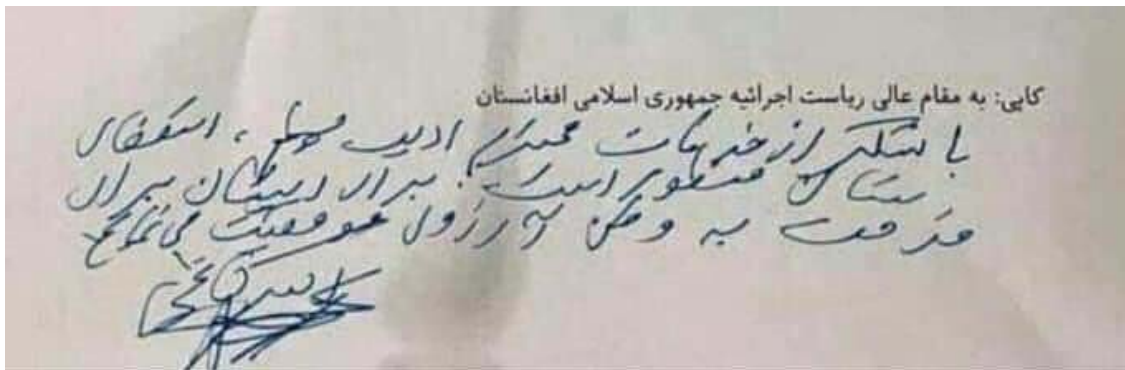 کاپی: به مقام عالی ریاست اجرائیه جمهوری اسلامی افغانستان
با تشکر از خدمات محترم ادیب فهیم، استعفای
شان منظور است. برای ایشان برای
خدمت به وطن آرزوی موفقیت می‌نمایم